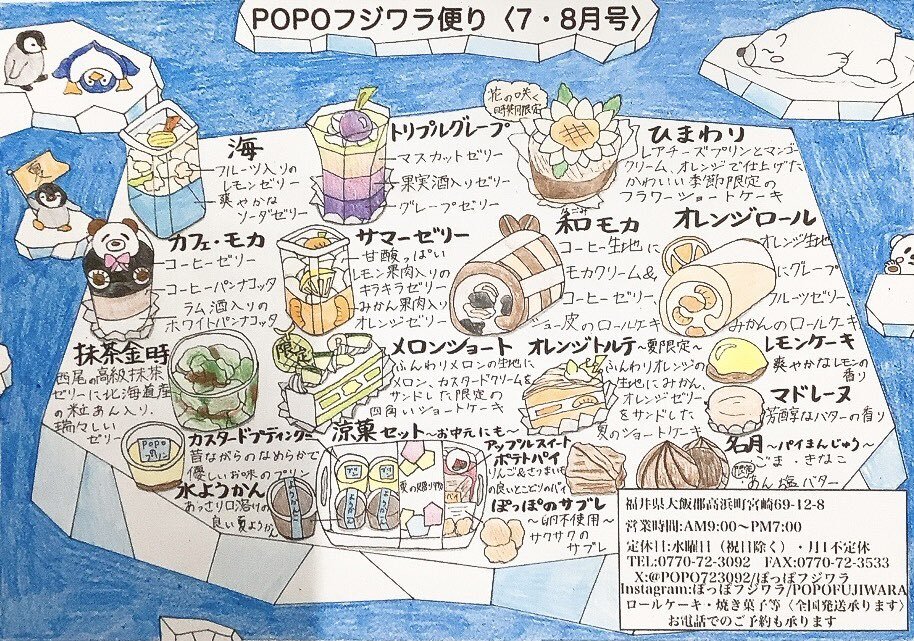 POPOフジワラ便り〈7・8月号〉
海
フルーツ入りの
レモンゼリー
爽やかな
ソーダゼリー
トリプルグレープ
マスカットゼリー
果実酒入りゼリー
グレープゼリー
花の咲く
時期限定
ひまわり
レアチーズプリンとマンゴー
クリーム、オレンジで仕上げた
かわいい季節限定の
フラワーショートケーキ
夏
カフェ・モカ
コーヒーゼリー
コーヒーパンナコッタ
ラム酒入りの
ホワイトパンナコッタ
サマーゼリー
甘酸っぱい
レモン果肉入りの
キラキラゼリー
みかん果肉入り
オレンジゼリー
和モカ
なごみ
コーヒー生地に
モカクリーム&
コーヒーゼリー、
シュー皮のロールケーキ
オレンジロール
オレンジ生地
にグレープ
フルーツゼリー、
みかんのロールケーキ
抹茶金時
西尾の高級抹茶
ゼリーに北海道産
の粒あん入り、
瑞々しい
ゼリー
限定
メロンショート
ふんわりメロンの生地に
メロン、カスタードクリームを
サンドした限定の
四角いショートケーキ
オレンジトルテ〜夏限定〜
ふんわりオレンジの
生地にみかん、
オレンジゼリー
をサンドした
夏のショートケーキ
レモンケーキ
爽やかなレモンの
香り
マドレーヌ
芳醇なバターの香り
POPO
プリン
カスタードプディング
昔ながらのなめらかで
優しいお味のプリン
水ようかん
あっさり口溶けの
良い夏ようかん
涼菓セット〜お中元にも〜
夏の贈り物
アップルスイート
ポテトパイ
りんご&さつまいも
の良いとこどりのパイ
ぽっぽのサブレ
〜卵不使用〜
サクサクの
サブレ
名月〜パイまんじゅう〜
ごま・きなこ
あん塩バター
福井県大飯郡高浜町宮崎69-12-8
営業時間:AM9:00〜PM7:00
定休日:水曜日（祝日除く）・月1不定休
TEL:0770-72-3092 FAX:0770-72-3533
X:@POPO723092/ぽっぽフジワラ
Instagram:ぽっぽフジワラ/POPOFUJIWARA
ロールケーキ・焼き菓子等〈全国発送承ります〉
お電話でのご予約も承ります